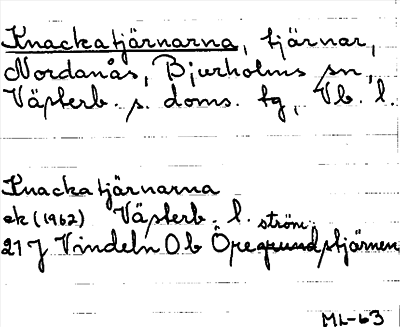 Knackatjärnarna, tjärnar,
Nordanås, Bjurholms sn,
Västerb. s. doms. tg, Vb. l.
Knackatjärnarna
ek (1962) Västerb. l.
ström
21 J Vindeln Ob Öregrundstjärnen
ML-63